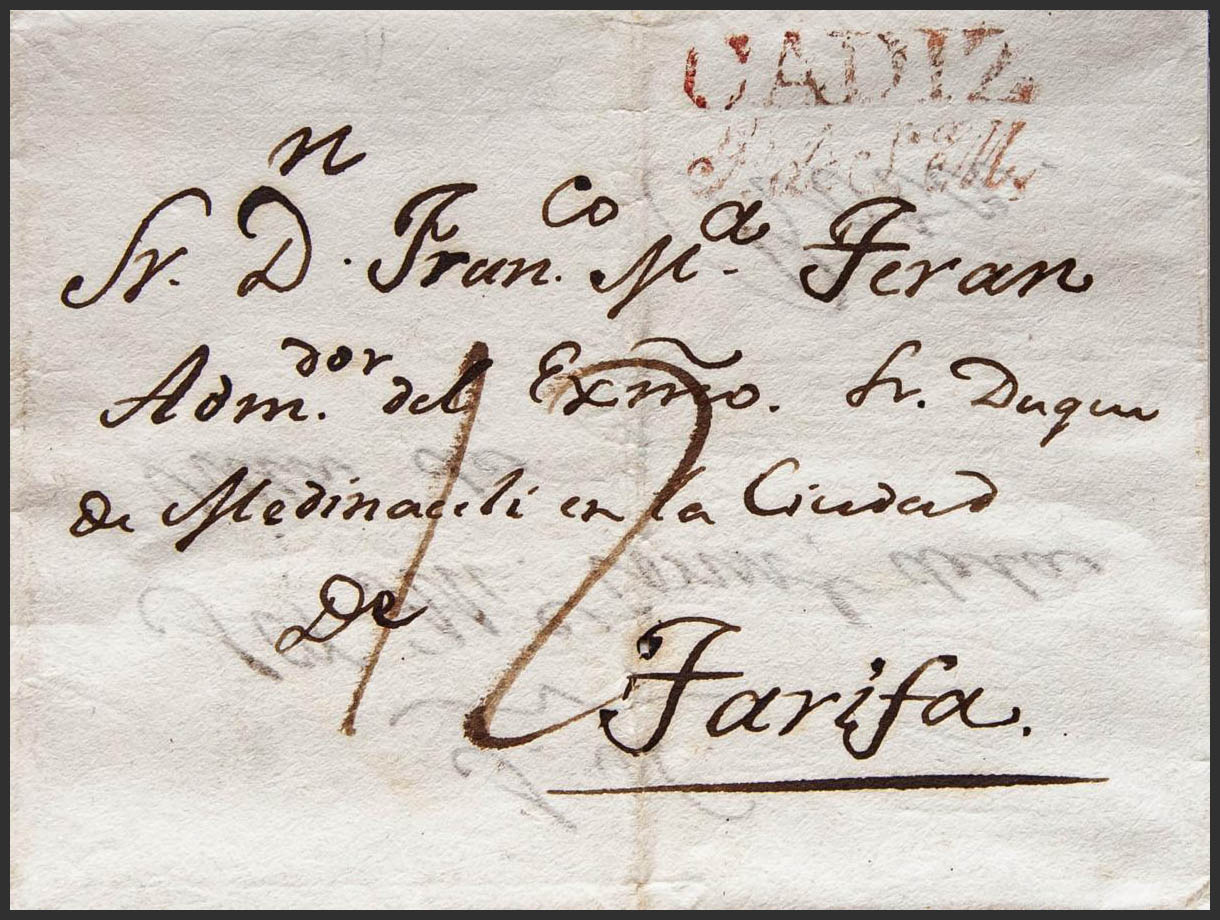 CADIZ
Sr. Dn. Fran.co Ma. Feran
Adm.dor del Exm̃o. Sr. Duque
de Medinaceli en la Ciudad
De
Tarifa.
12